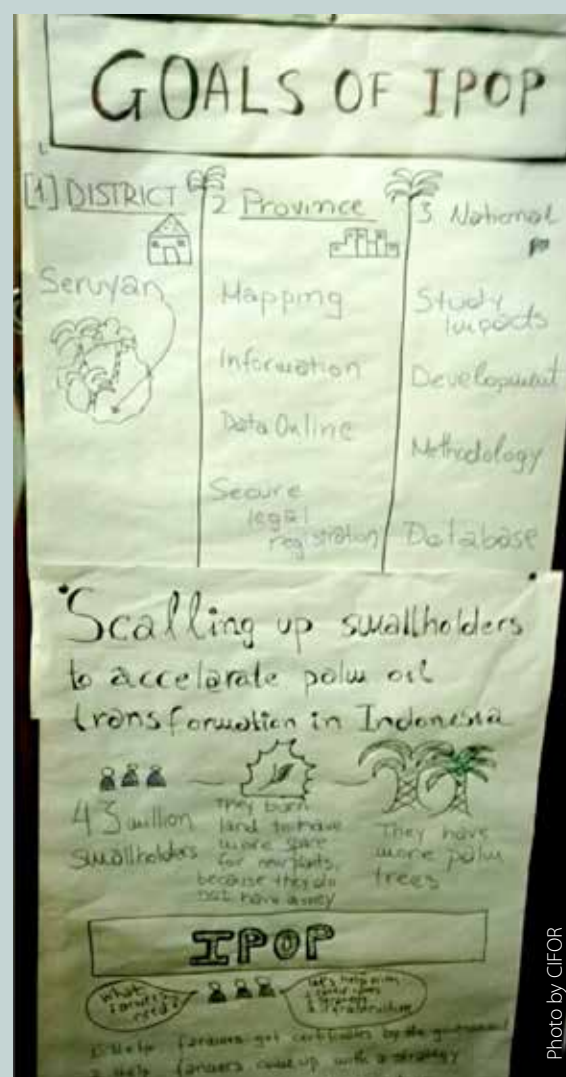 GOALS OF IPOP
[1] DISTRICT
Seruyan
2 Province
Mapping
Information
Data Online
Secure
legal
registration
3 National
Study
Impacts
Development
Methodology
Database
Scalling up smallholders
to accelarate palm oil
transformation in Indonesia
43 million
smallholders
They burn
land to have
more
for
because they do
not have
They have
more palm
trees
IPOP
What
need?
let's help
1) Help farmers get certificates by the
2 Help farmers come up with a strategy
Photo by CIFOR